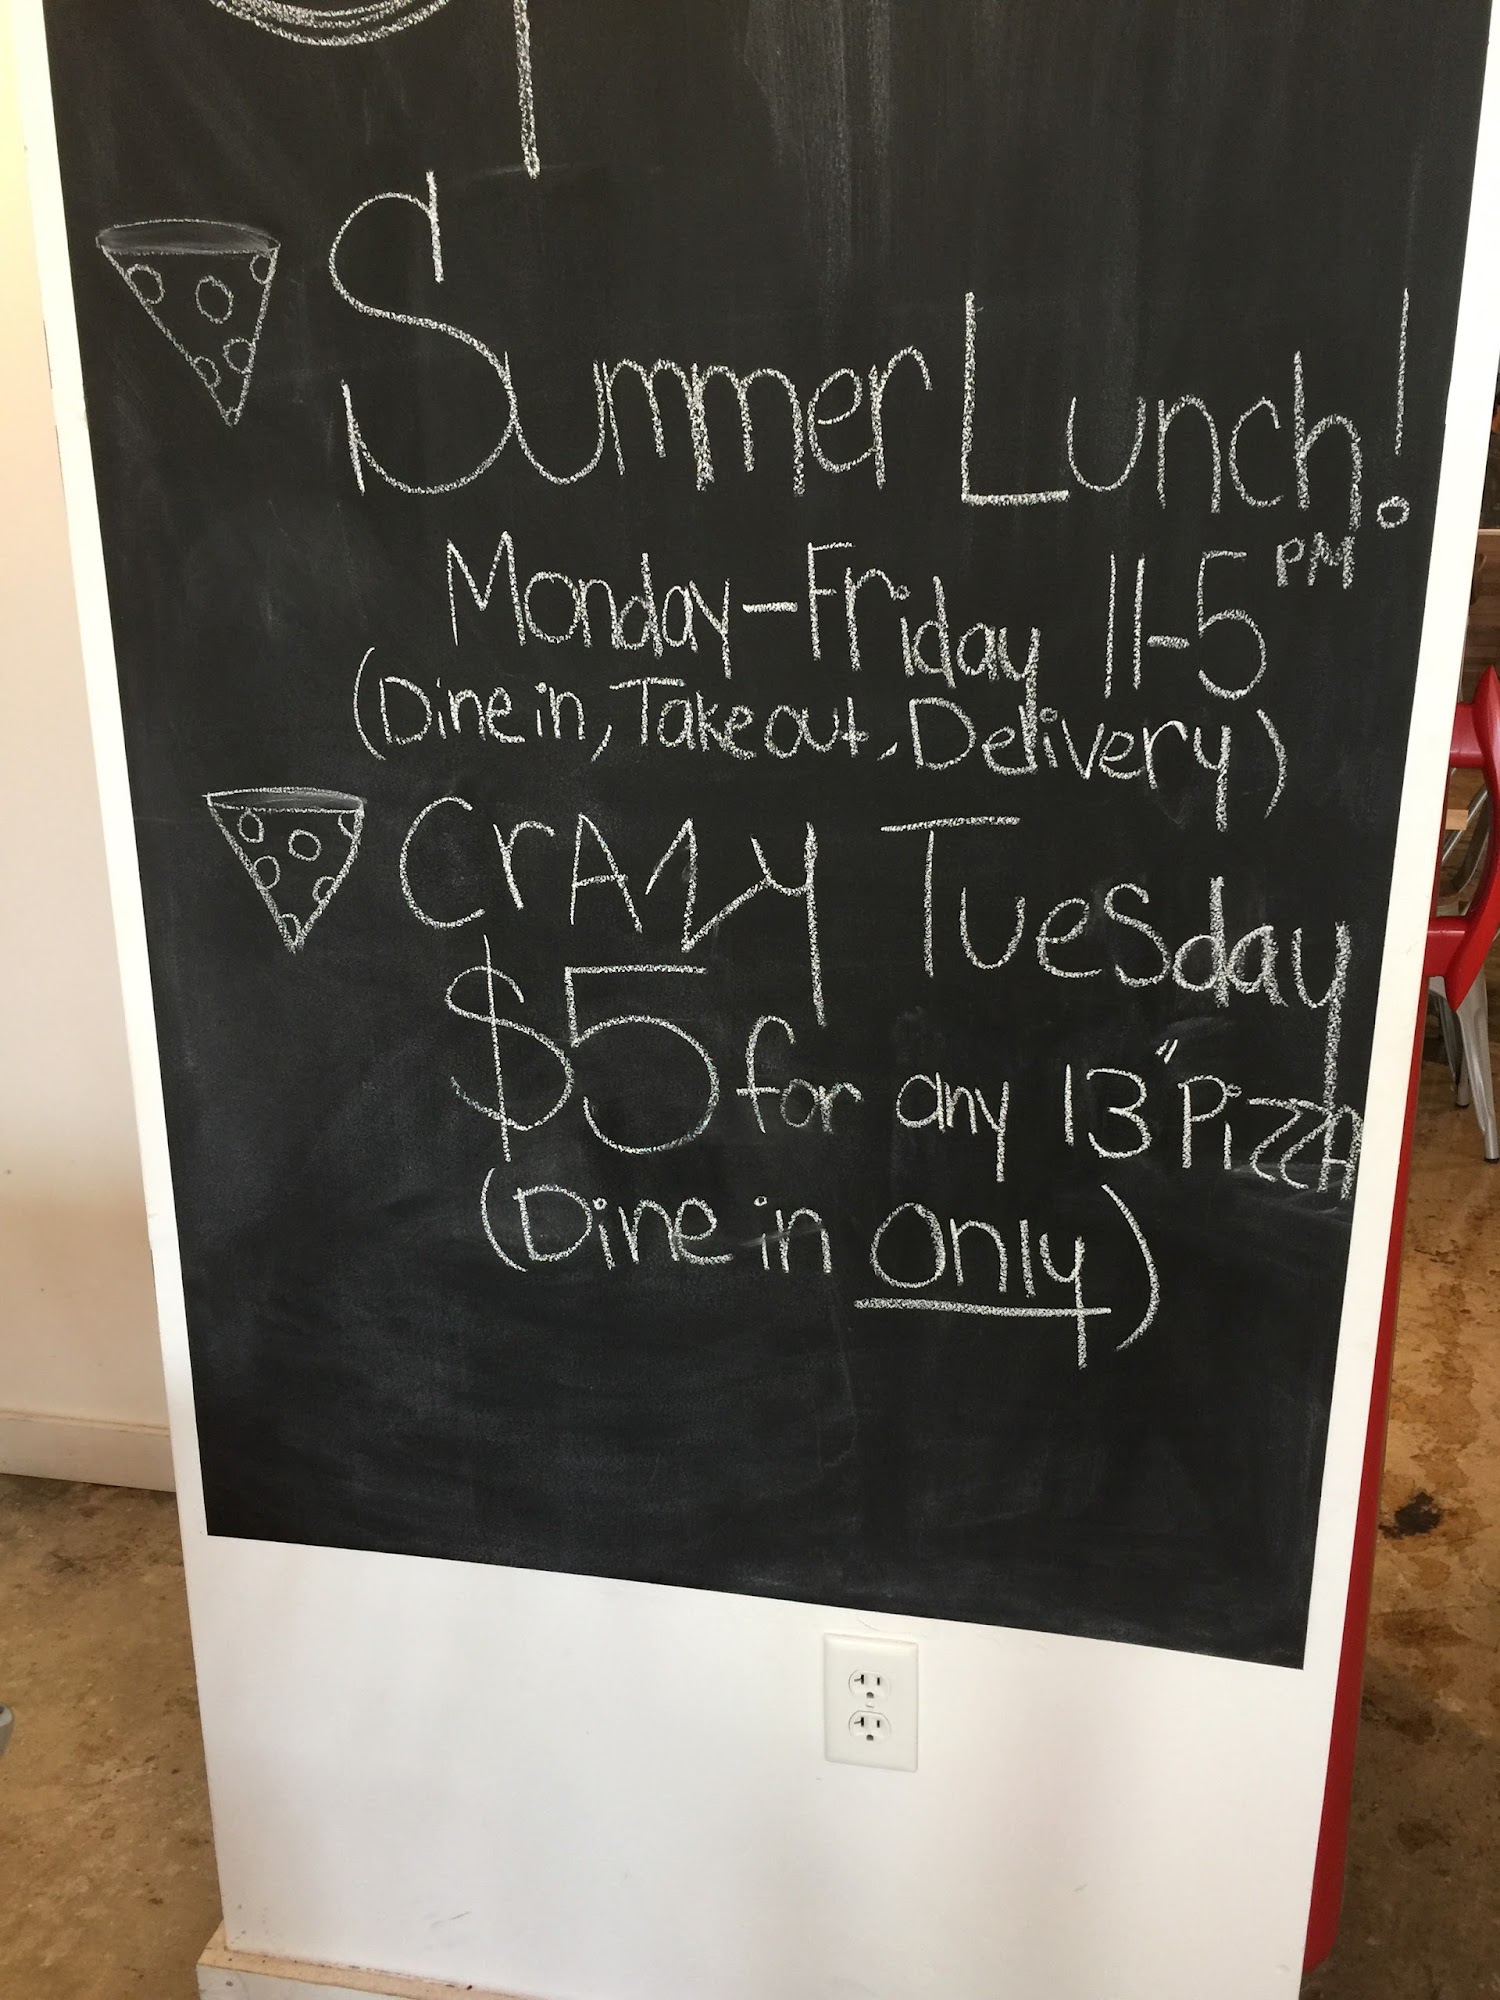 Summer Lunch!
Monday-Friday 11-5 PM
(Dine in, Takeout, Delivery)
CrAZy TueSday
$5 for any 13" PizzA
(Dine in Only)